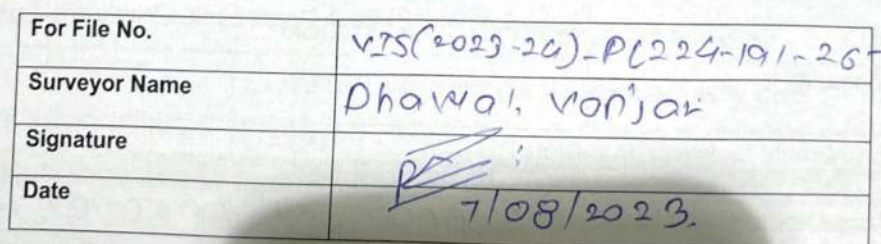 For File No. VIS(2023-24)-PL224-191-26
Surveyor Name Dhawal Vanjar
Signature
Date 7/08/2023.